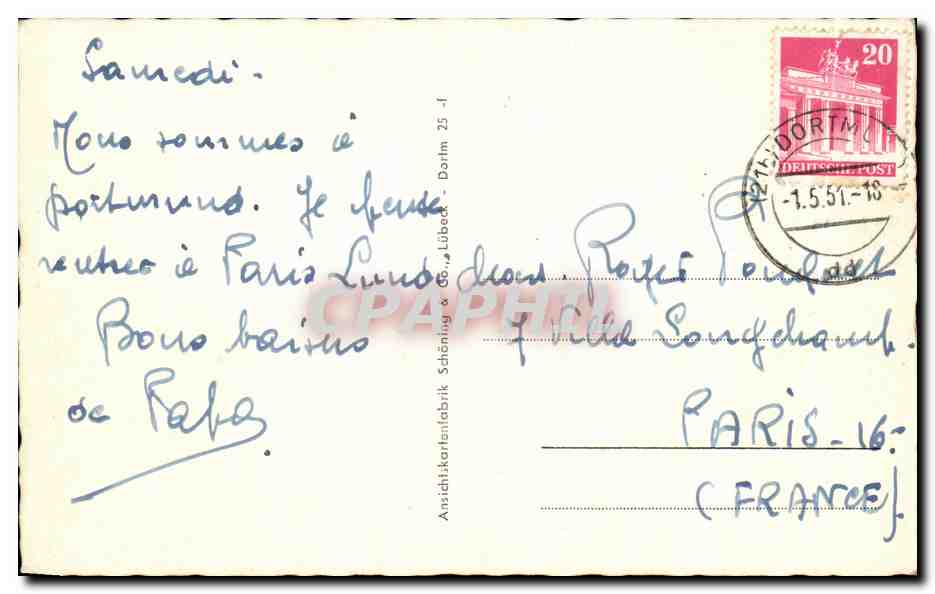 Samedi -
Nous sommes à
Dortmund. Je pense
rentrer à Paris Lundi
Bons baisers
de Papa
Ansichtskartenfabrik Schöning & Co., Lübeck - Dortm 25 -f
20
DEUTSCHE POST
(21b) DORTMU
-1.5.51.-18
dd
Roger
7 Villa Longchamp.
PARIS - 16e
(FRANCE)
CPAPHIL